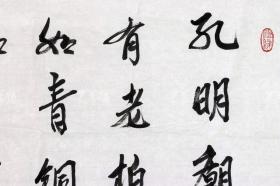 孔明廟
有老柏
如青銅